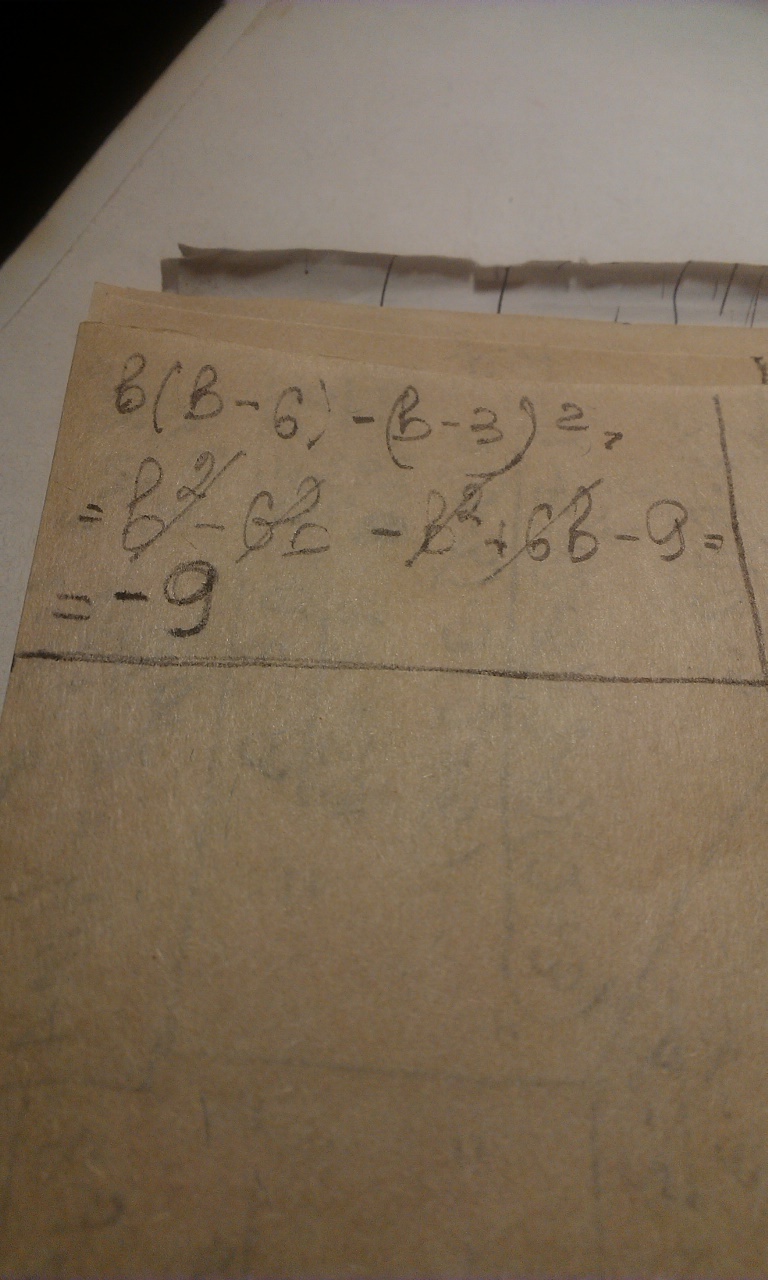 b(b-6)-(b-3)²=
=b²-6b-b²+6b-9=
=-9